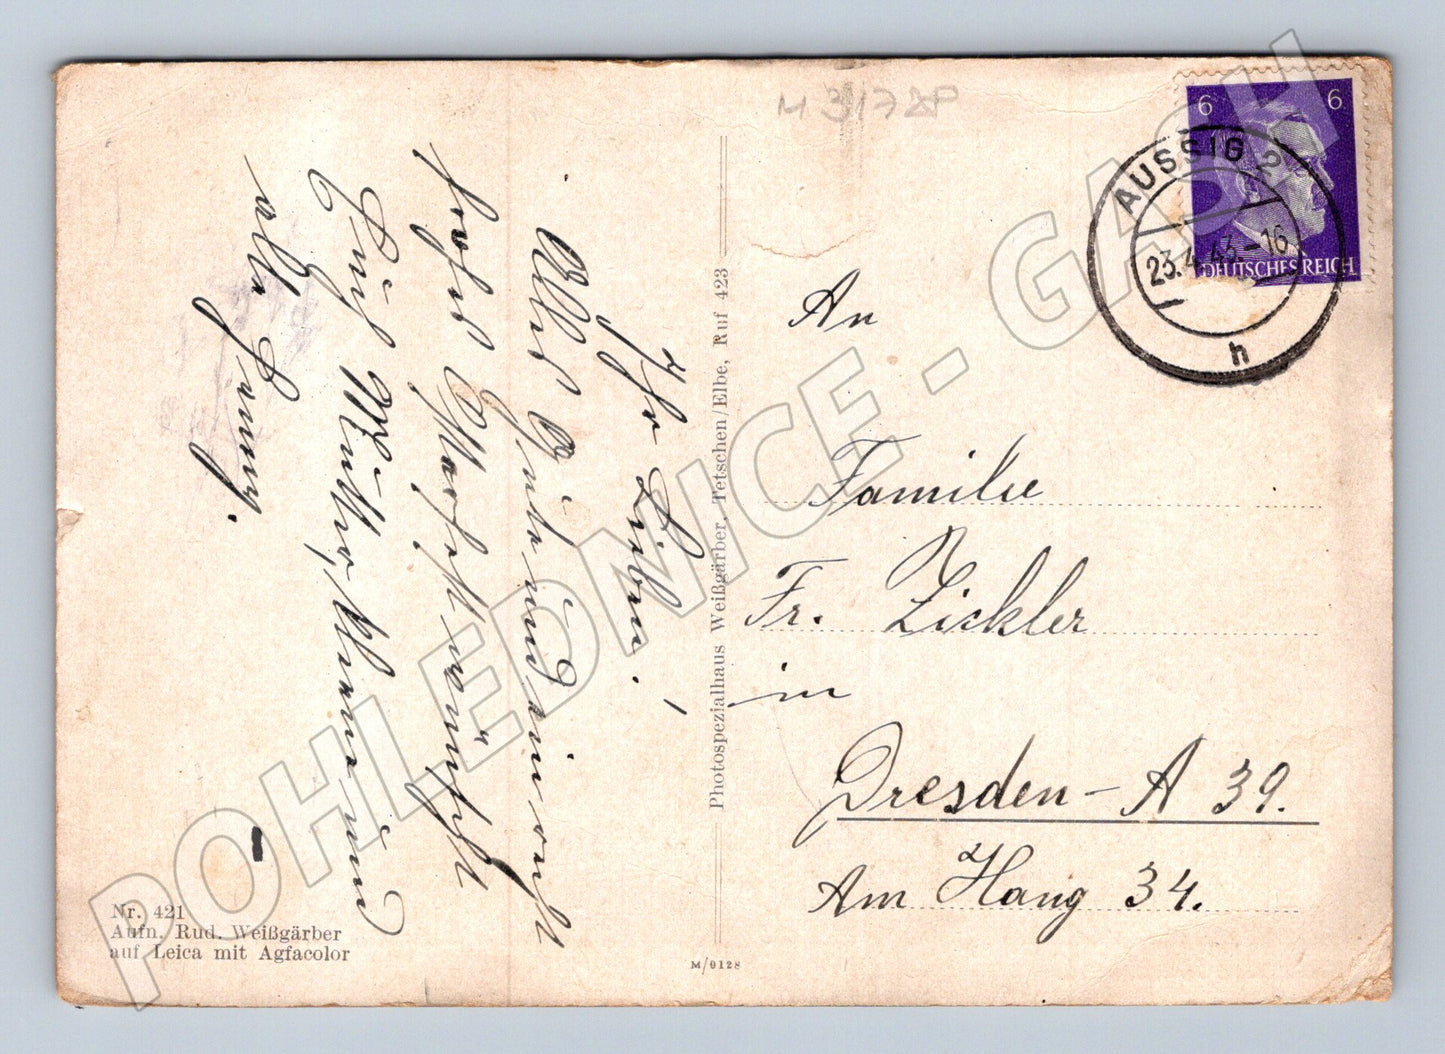 M 3178P
6 6
DEUTSCHES REICH
AUSSIG 2
23.4.43.-16
h
Ihr Lieben!
Alles Gute und ein recht
frohes Osterfest wünscht
Euch Mutter, und
alle
Photospezialhaus Weißgärber, Tetschen/Elbe, Ruf 423
An
Familie
Fr. Zickler
in
Dresden-A 39.
Am Hang 34.
Nr. 421
Aufn. Rud. Weißgärber
auf Leica mit Agfacolor
M/0128
POHLEDNICE - GASH